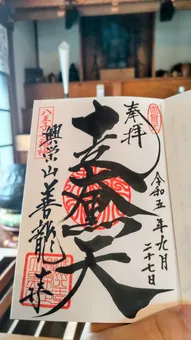 奉拝
令和五年九月二十七日
走大黒天
興栄山善龍寺